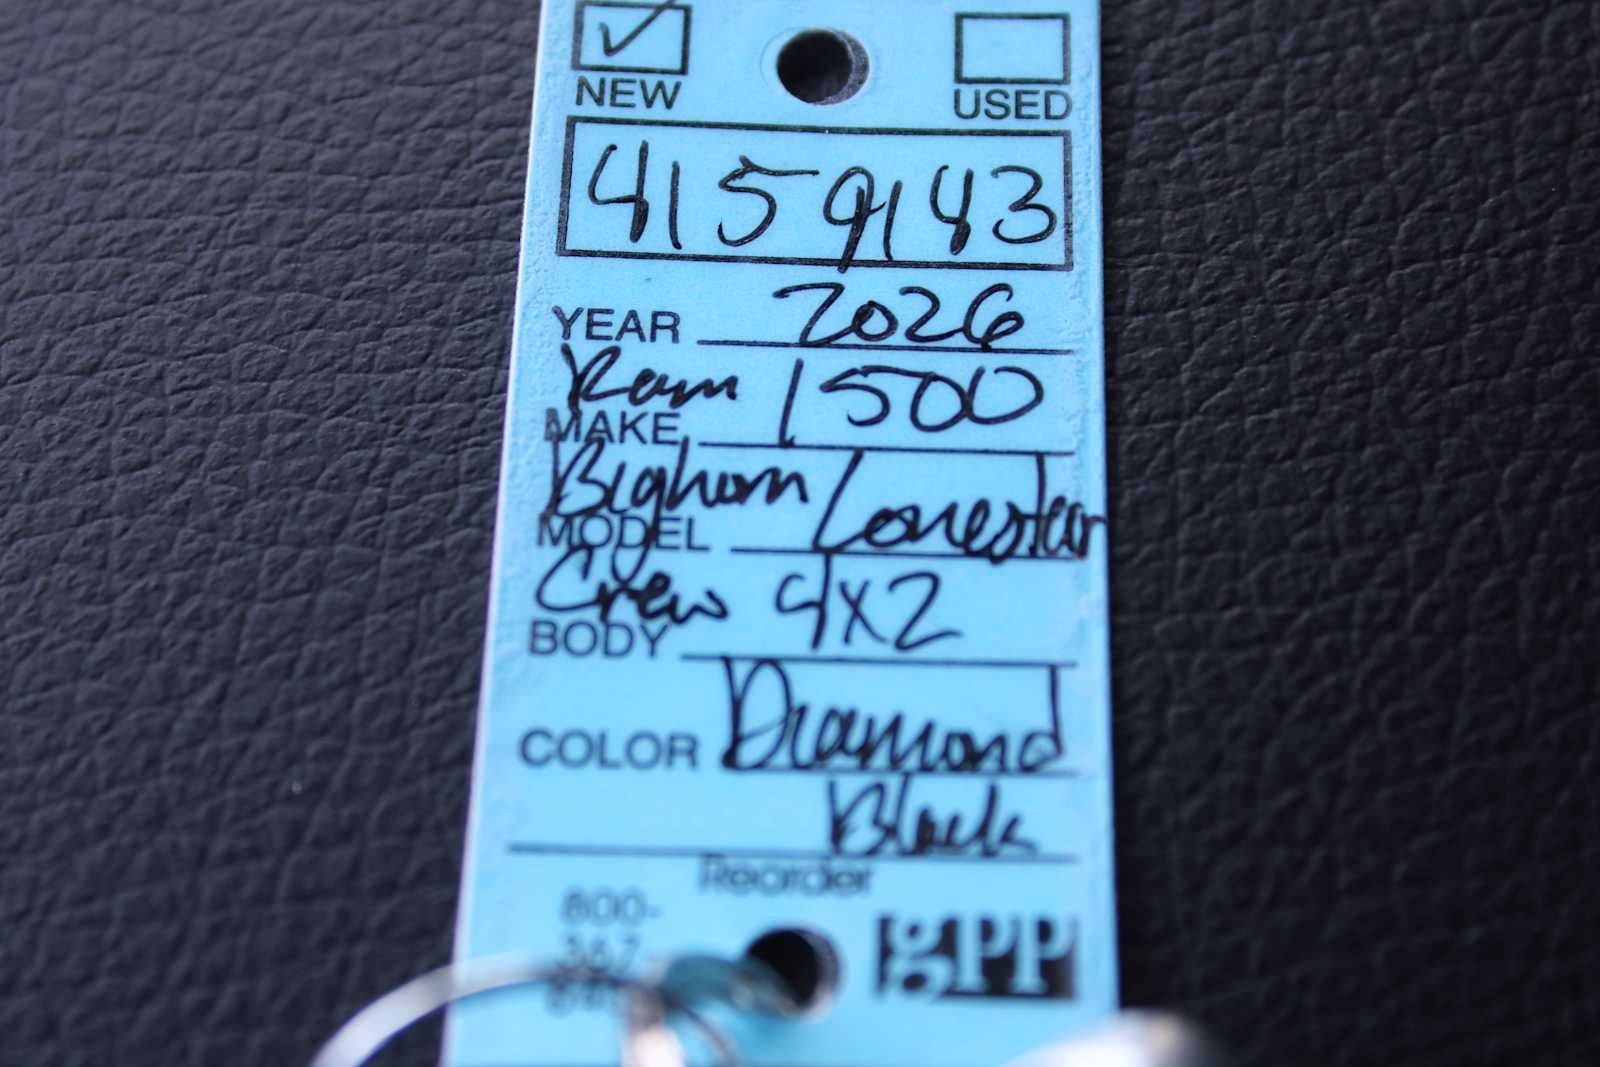 NEW USED
4159143
YEAR 2026
Ram 1500
MAKE
Bighorn/Lonestar
MODEL
Crew 4x2
BODY
COLOR Diamond
Black
Reorder
800-
367-
gPP